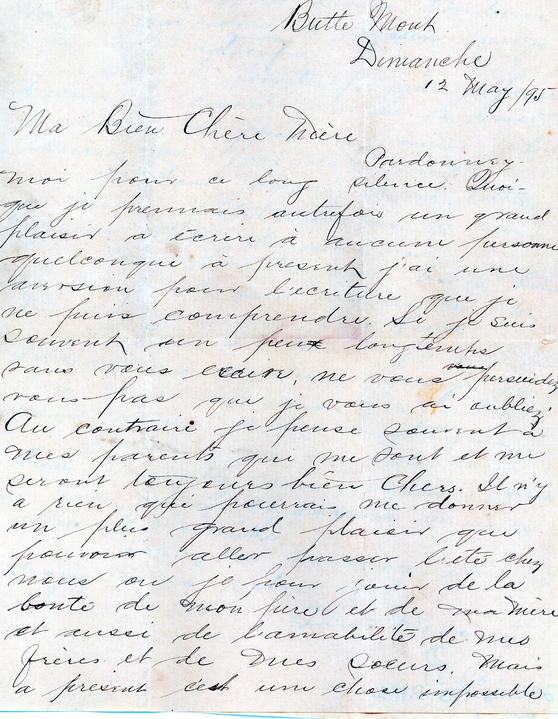 Butte Mont
Dimanche
12 May /95
Ma Bien Chère Mère
Pardonnez-
moi pour ce long silence. Quoi-
que je prennais autrefois un grand
plaisir a écrire à aucune personne
quelconque à present j'ai une
aversion pour l'ecriture que je
ne puis comprendre. Si je suis
souvent un peux longtemps
sans vous ecrire, ne vous persuidez
vous-pas que je vous ai oubliez,
Au contraire je pense souvent à
mes parents qui me sont et me
seront toujours bien Chers. Il n'y
a rien qui pourrais me donner
un plus grand plaisir que
pouvoir aller passer l'eté chez
nous ou je pour jouir de la
bonte de mon père et de ma Mère
et aussi de l'amabilité de mes
frères et de mes soeurs. Mais
a present c'est une chose impossible